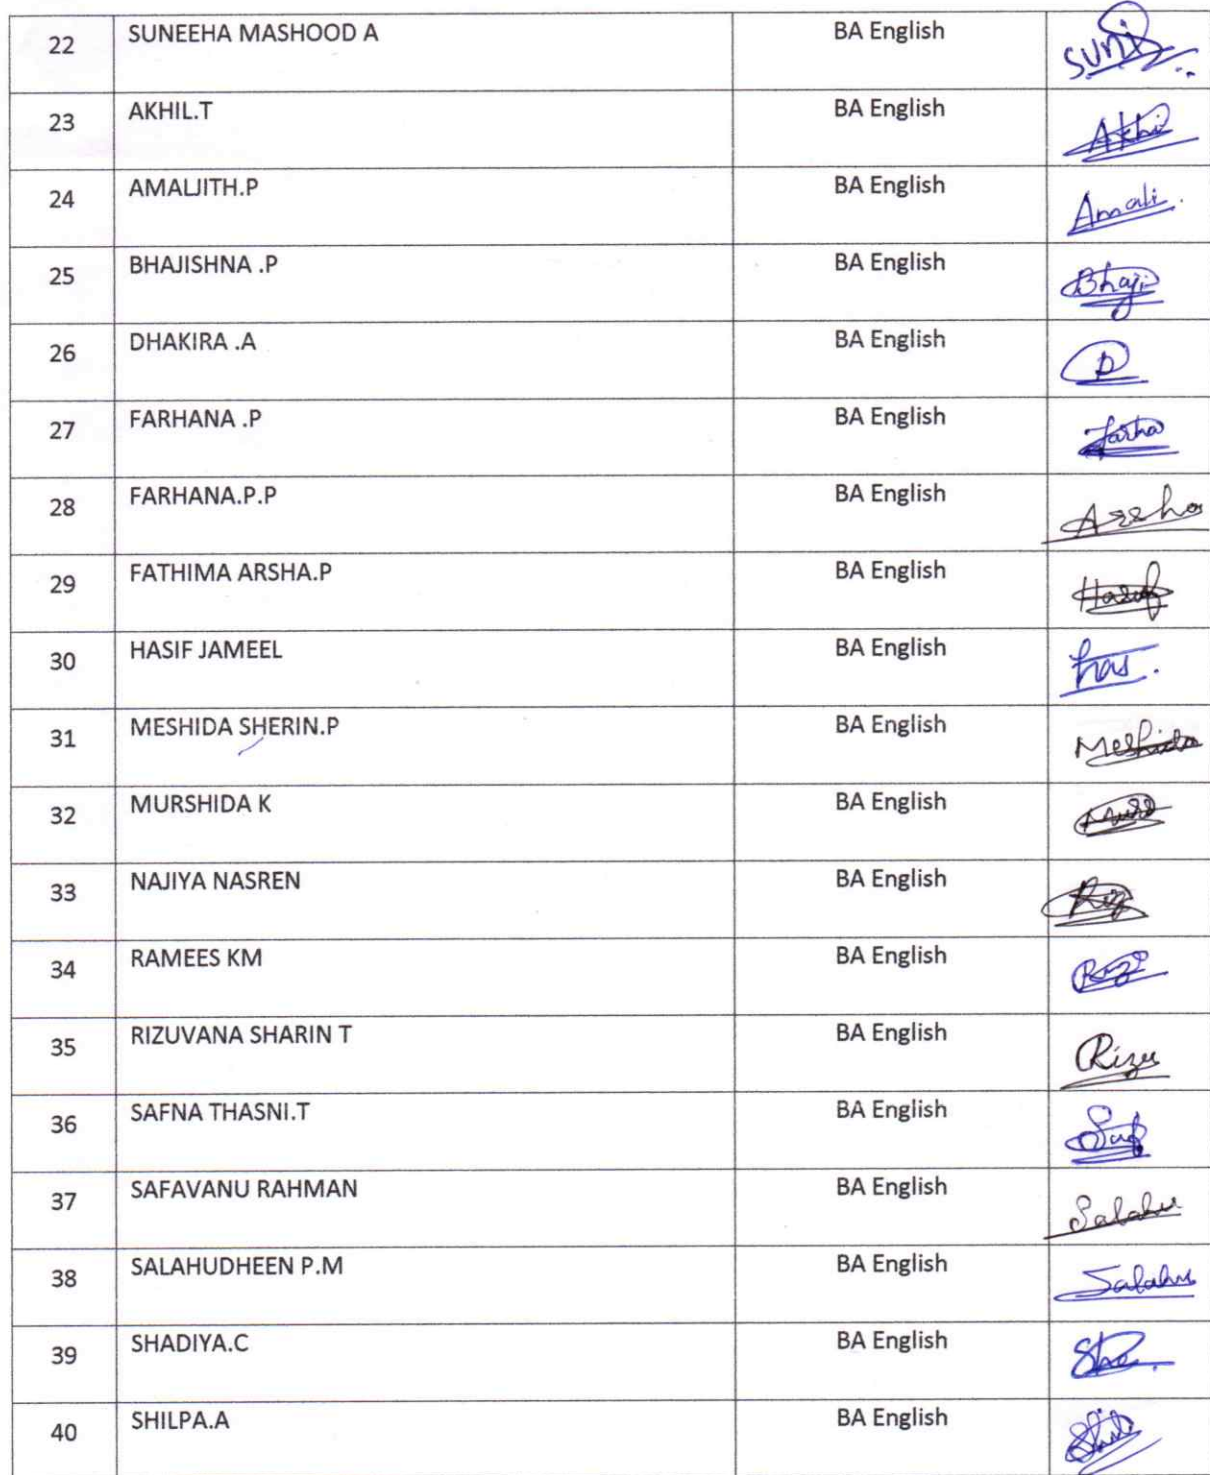 22 SUNEEHA MASHOOD A BA English Suni
23 AKHIL.T BA English Akhi
24 AMALJITH.P BA English Amali
25 BHAJISHNA .P BA English Bhaji
26 DHAKIRA .A BA English D
27 FARHANA .P BA English Farha
28 FARHANA.P.P BA English Arsha
29 FATHIMA ARSHA.P BA English Hasif
30 HASIF JAMEEL BA English has.
31 MESHIDA SHERIN.P BA English Meshida
32 MURSHIDA K BA English
33 NAJIYA NASREN BA English
34 RAMEES KM BA English
35 RIZUVANA SHARIN T BA English Rizu
36 SAFNA THASNI.T BA English Saf
37 SAFAVANU RAHMAN BA English Salahu
38 SALAHUDHEEN P.M BA English Salahu
39 SHADIYA.C BA English Sha
40 SHILPA.A BA English